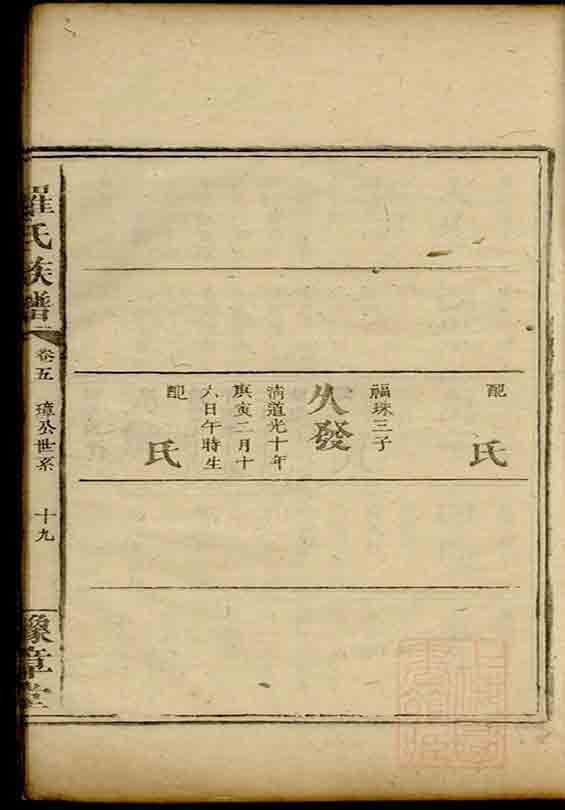 配
氏
福珠三子
久發
清道光十年
庚寅二月十
六日午時生
配
氏
羅氏族譜
卷五
璋公世系
十九
豫章堂